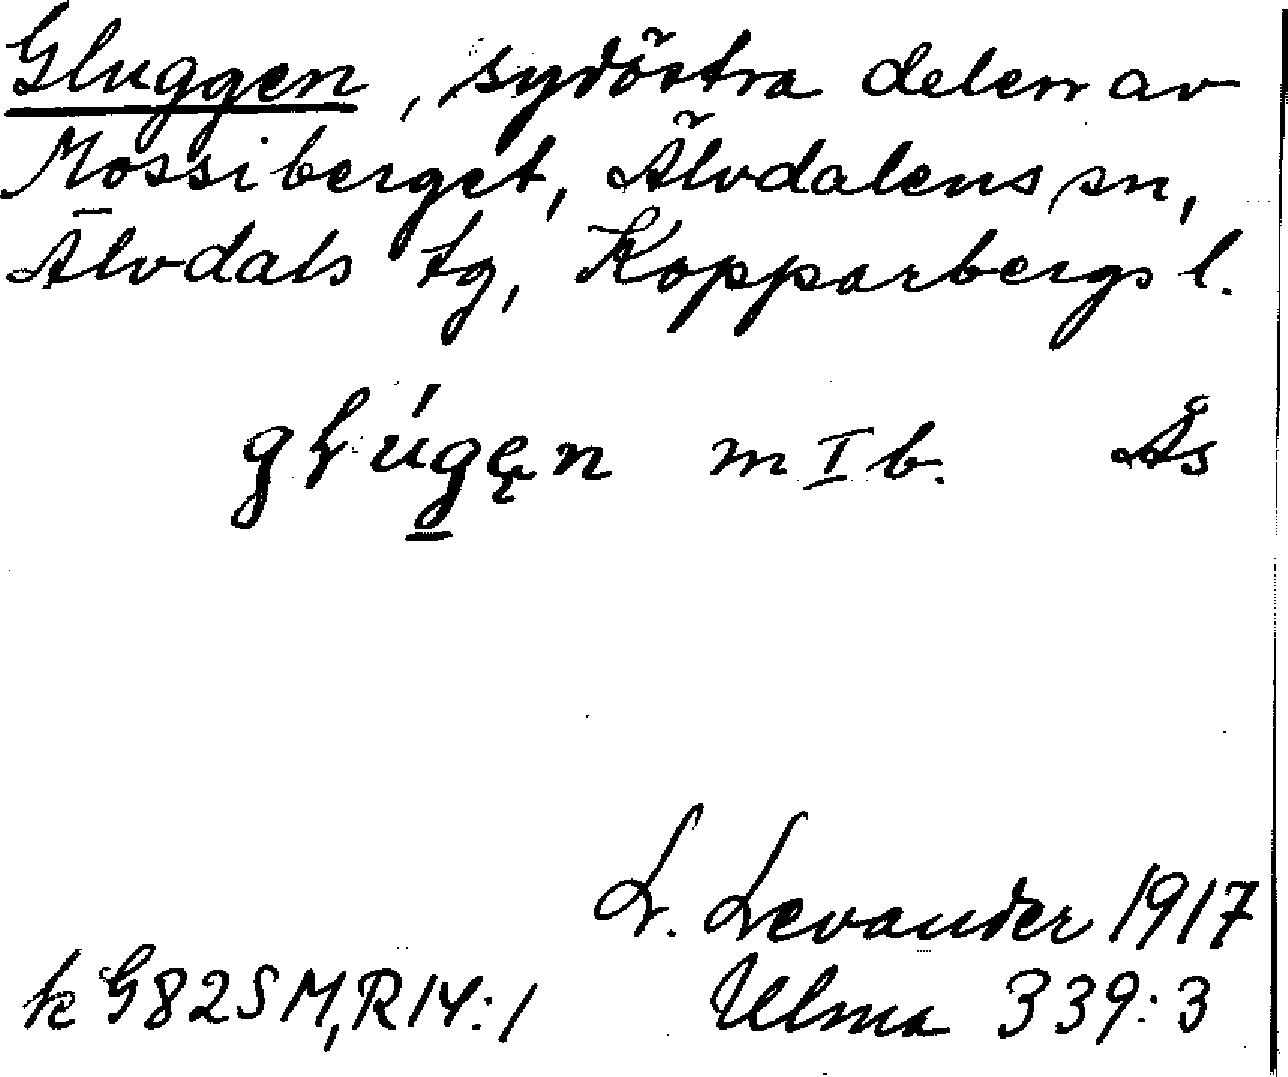 Gluggen, sydöstra delen av
Mossiberget, Älvdalens sn,
Älvdals tg, Kopparbergs l.
głúgęn m I b. Ås
L. Levander 1917
k G82S M,R14:1 Ulma 339:3